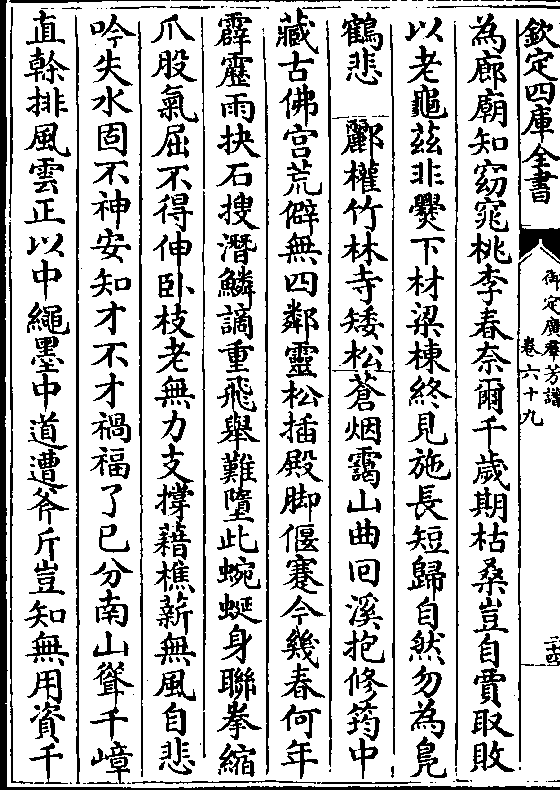 欽定四庫全書
御定廣羣芳譜
卷六十九
二十四
為廊廟知窈窕桃李春奈爾千歲期枯桑豈自賈取敗
以老龜茲非爨下材梁棟終見施長短歸自然勿為鳧
鶴悲 酈權竹林寺矮松蒼烟靄山曲回溪抱修筠中
藏古佛宫荒僻無四鄰靈松插殿脚偃蹇今幾春何年
霹靂雨抉石搜潛鱗謫重飛舉難墮此蜿蜒身聯拳縮
爪股氣屈不得伸卧枝老無力支撐藉樵薪無風自悲
吟失水固不神安知才不才禍福了已分南山聳千嶂
直榦排風雲正以中繩墨中道遭斧斤豈知無用資千